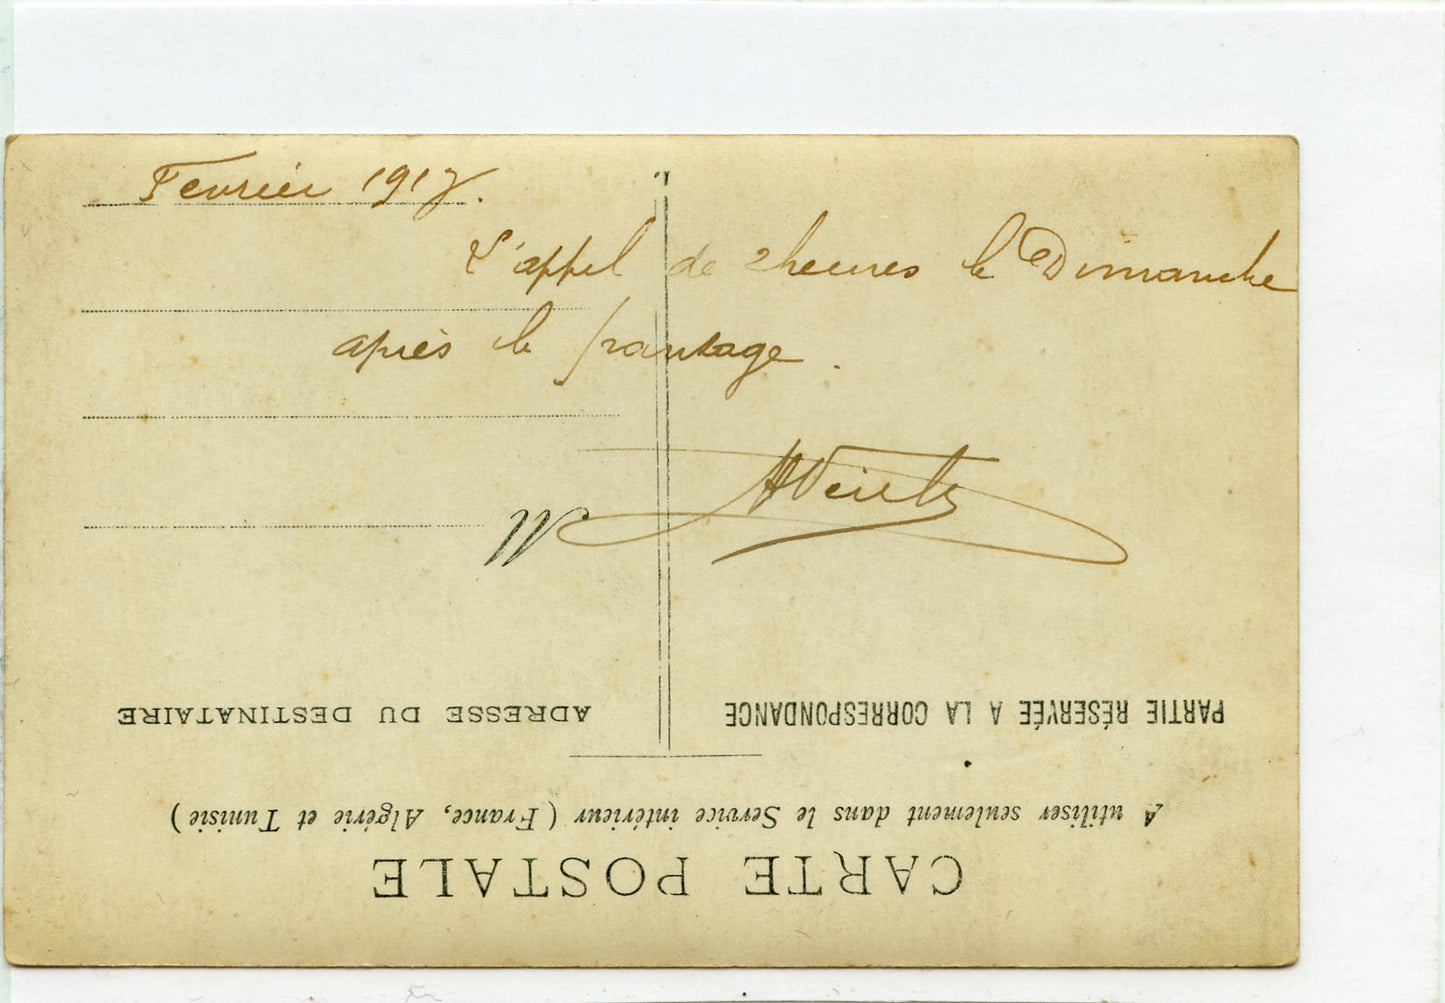 Fevrier 1917.
L'appel de 2 heures le Dimanche
après le
M
ADRESSE DU DESTINATAIRE
PARTIE RÉSERVÉE A LA CORRESPONDANCE
A utiliser seulement dans le Service intérieur (France, Algérie et Tunisie)
CARTE POSTALE